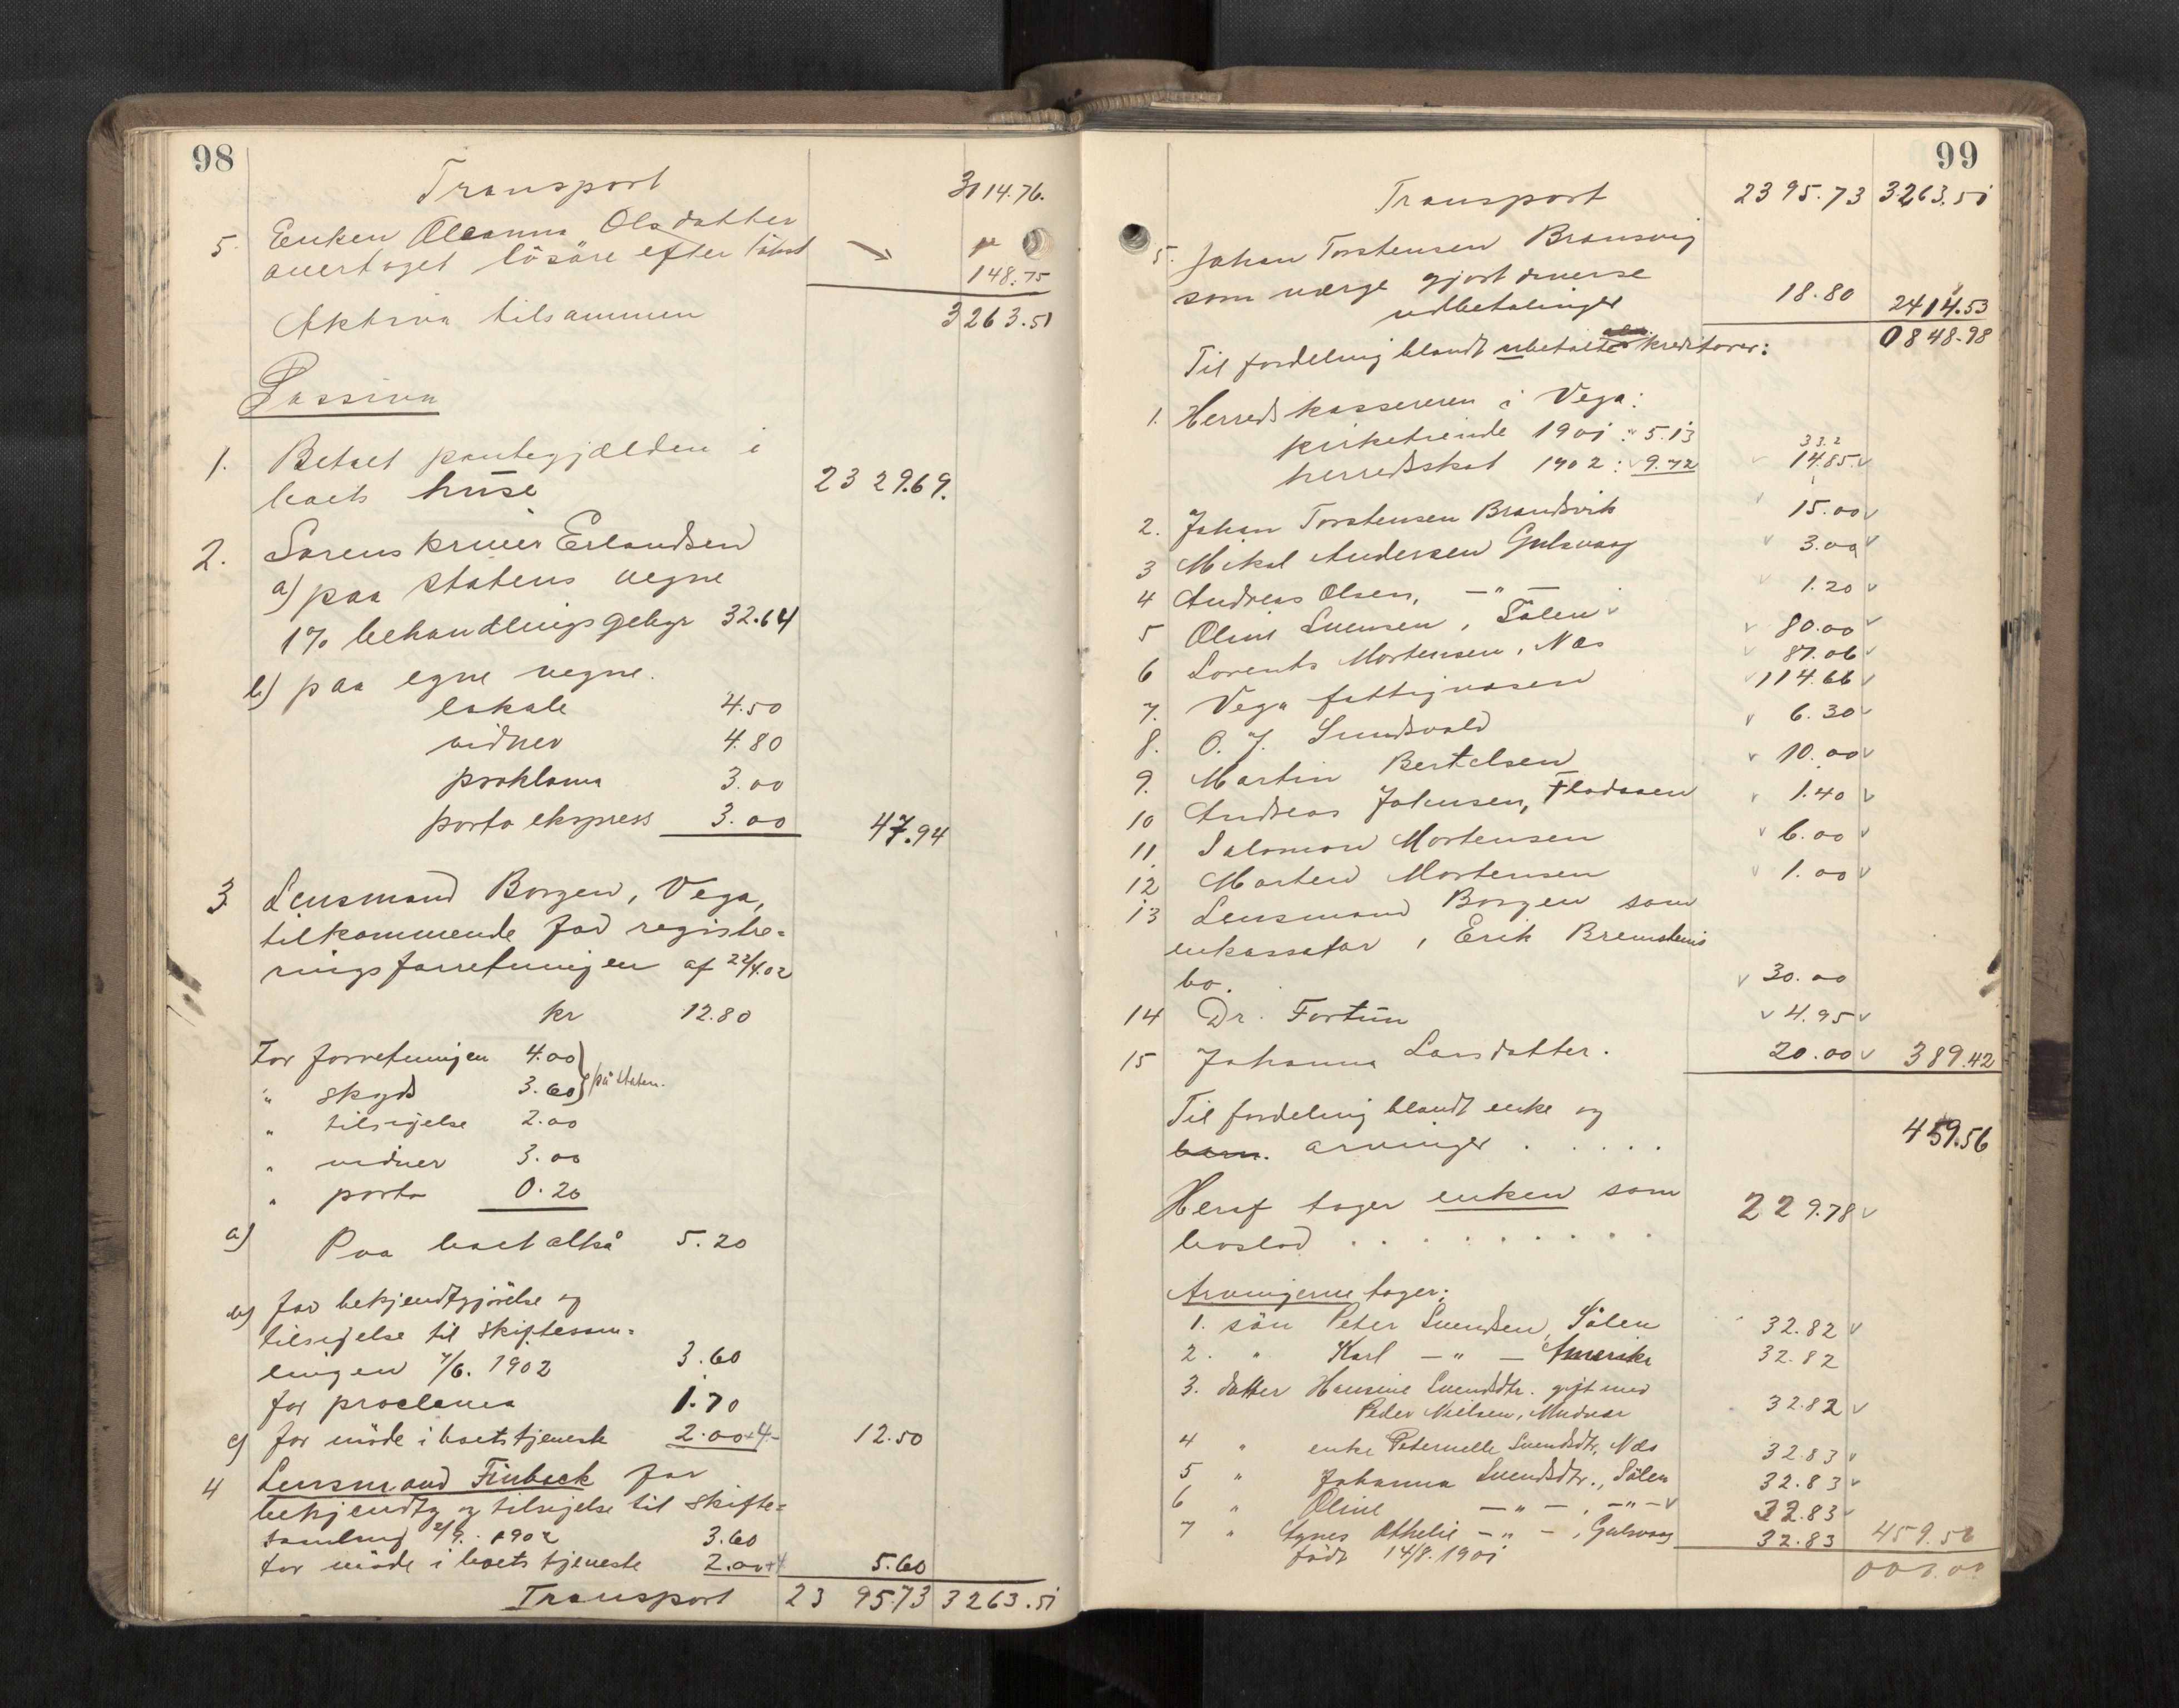 98
Transport 3114.76.
5. Enken Oleanna Olsdatter
overtaget løsøre efter takst 148.75
Aktiva tilsammen 3263.51
Passiva
1. Betalt pantegjælden i
boets huse 2329.69.
2. Sorenskriver Erlandsen
a) paa statens vegne
1% behandlingsgebyr 32.64
b) paa egne vegne.
lokale 4.50
vidner 4.80
proklama 3.00
porto ekspress 3.00 47.94
3 Lensmand Borgen, Vega,
tilkommende for registre-
ringsforretningen af 22/4.02
kr 12.80
For forretningen 4.00
" skyds 3.60 } på staten.
" tilsigelse 2.00
" vidner 3.00
" porto 0.20
a) Paa boet altså 5.20
b) for bekjendtgjörelse og
tilsigelse til skiftesam-
lingen 7/6. 1902 3.60
for proclama 1.70
c) for möde i boets tjeneste 2.00+4- 12.50
4 Lensmand Finbeck for
bekjendtg og tilsigelse til skifte-
samling 2/9. 1902 3.60
for möde i boets tjeneste 2.00+4 5.60
Transport 2395.73 3263.51
99
Transport 2395.73 3263.51
5. Johan Torstensen Bransvig
som værge gjort diverse
udbetalinger 18.80 2414.53
Til fordeling blandt ubetalte kreditorer: 0848.98
1. Herredskassereren i Vega:
kirketiende 1901: " 5.13 33.2
herredsskat 1902: 9.72 14.85
2. Johan Torstensen Brandsvik 15.00
3 Mikal Andersen Gulsvaag 3.00
4 Andreas Olsen, — " — 1.20
5 Oline Svensen, Sølen 80.00
6 Lorents Mortensen, Næs 87.06
7. Vega fattigvæsen 114.66
8. O. J. Sundsvold 6.30
9. Martin Bertelsen 10.00
10 Andreas Johnsen, Flodaaen 1.40
11 Salomon Mortensen 6.00
12 Morten Mortensen 1.00
13 Lensmand Borgen som
inkassator i Erik Bremsteins
bo. 30.00
14 Dr. Fortun 4.95
15 Johanna Larsdatter. 20.00 389.42
Til fordeling blandt enke og
børn. arvinger . . . . . 459.56
Heraf tager enken som
boslod . . . . . . . . . 229.78
Arvingerne tager:
1. sön Peter Svendsen, Sølen 32.82
2. " Karl — " — Amerika 32.82
3. datter Hansine Svendsdtr. gift med
Peder Nielsen, 32.82
4 " enke Peternelle Svendsdtr, Næs 32.83
5 " Johanna Svendsdtr., Sølen 32.83
6 " Oline — " —, — " — 32.83
7 " Agnes Othelie — " —, Gulsvaag 32.83 459.56
född 14/8. 1901 000.00